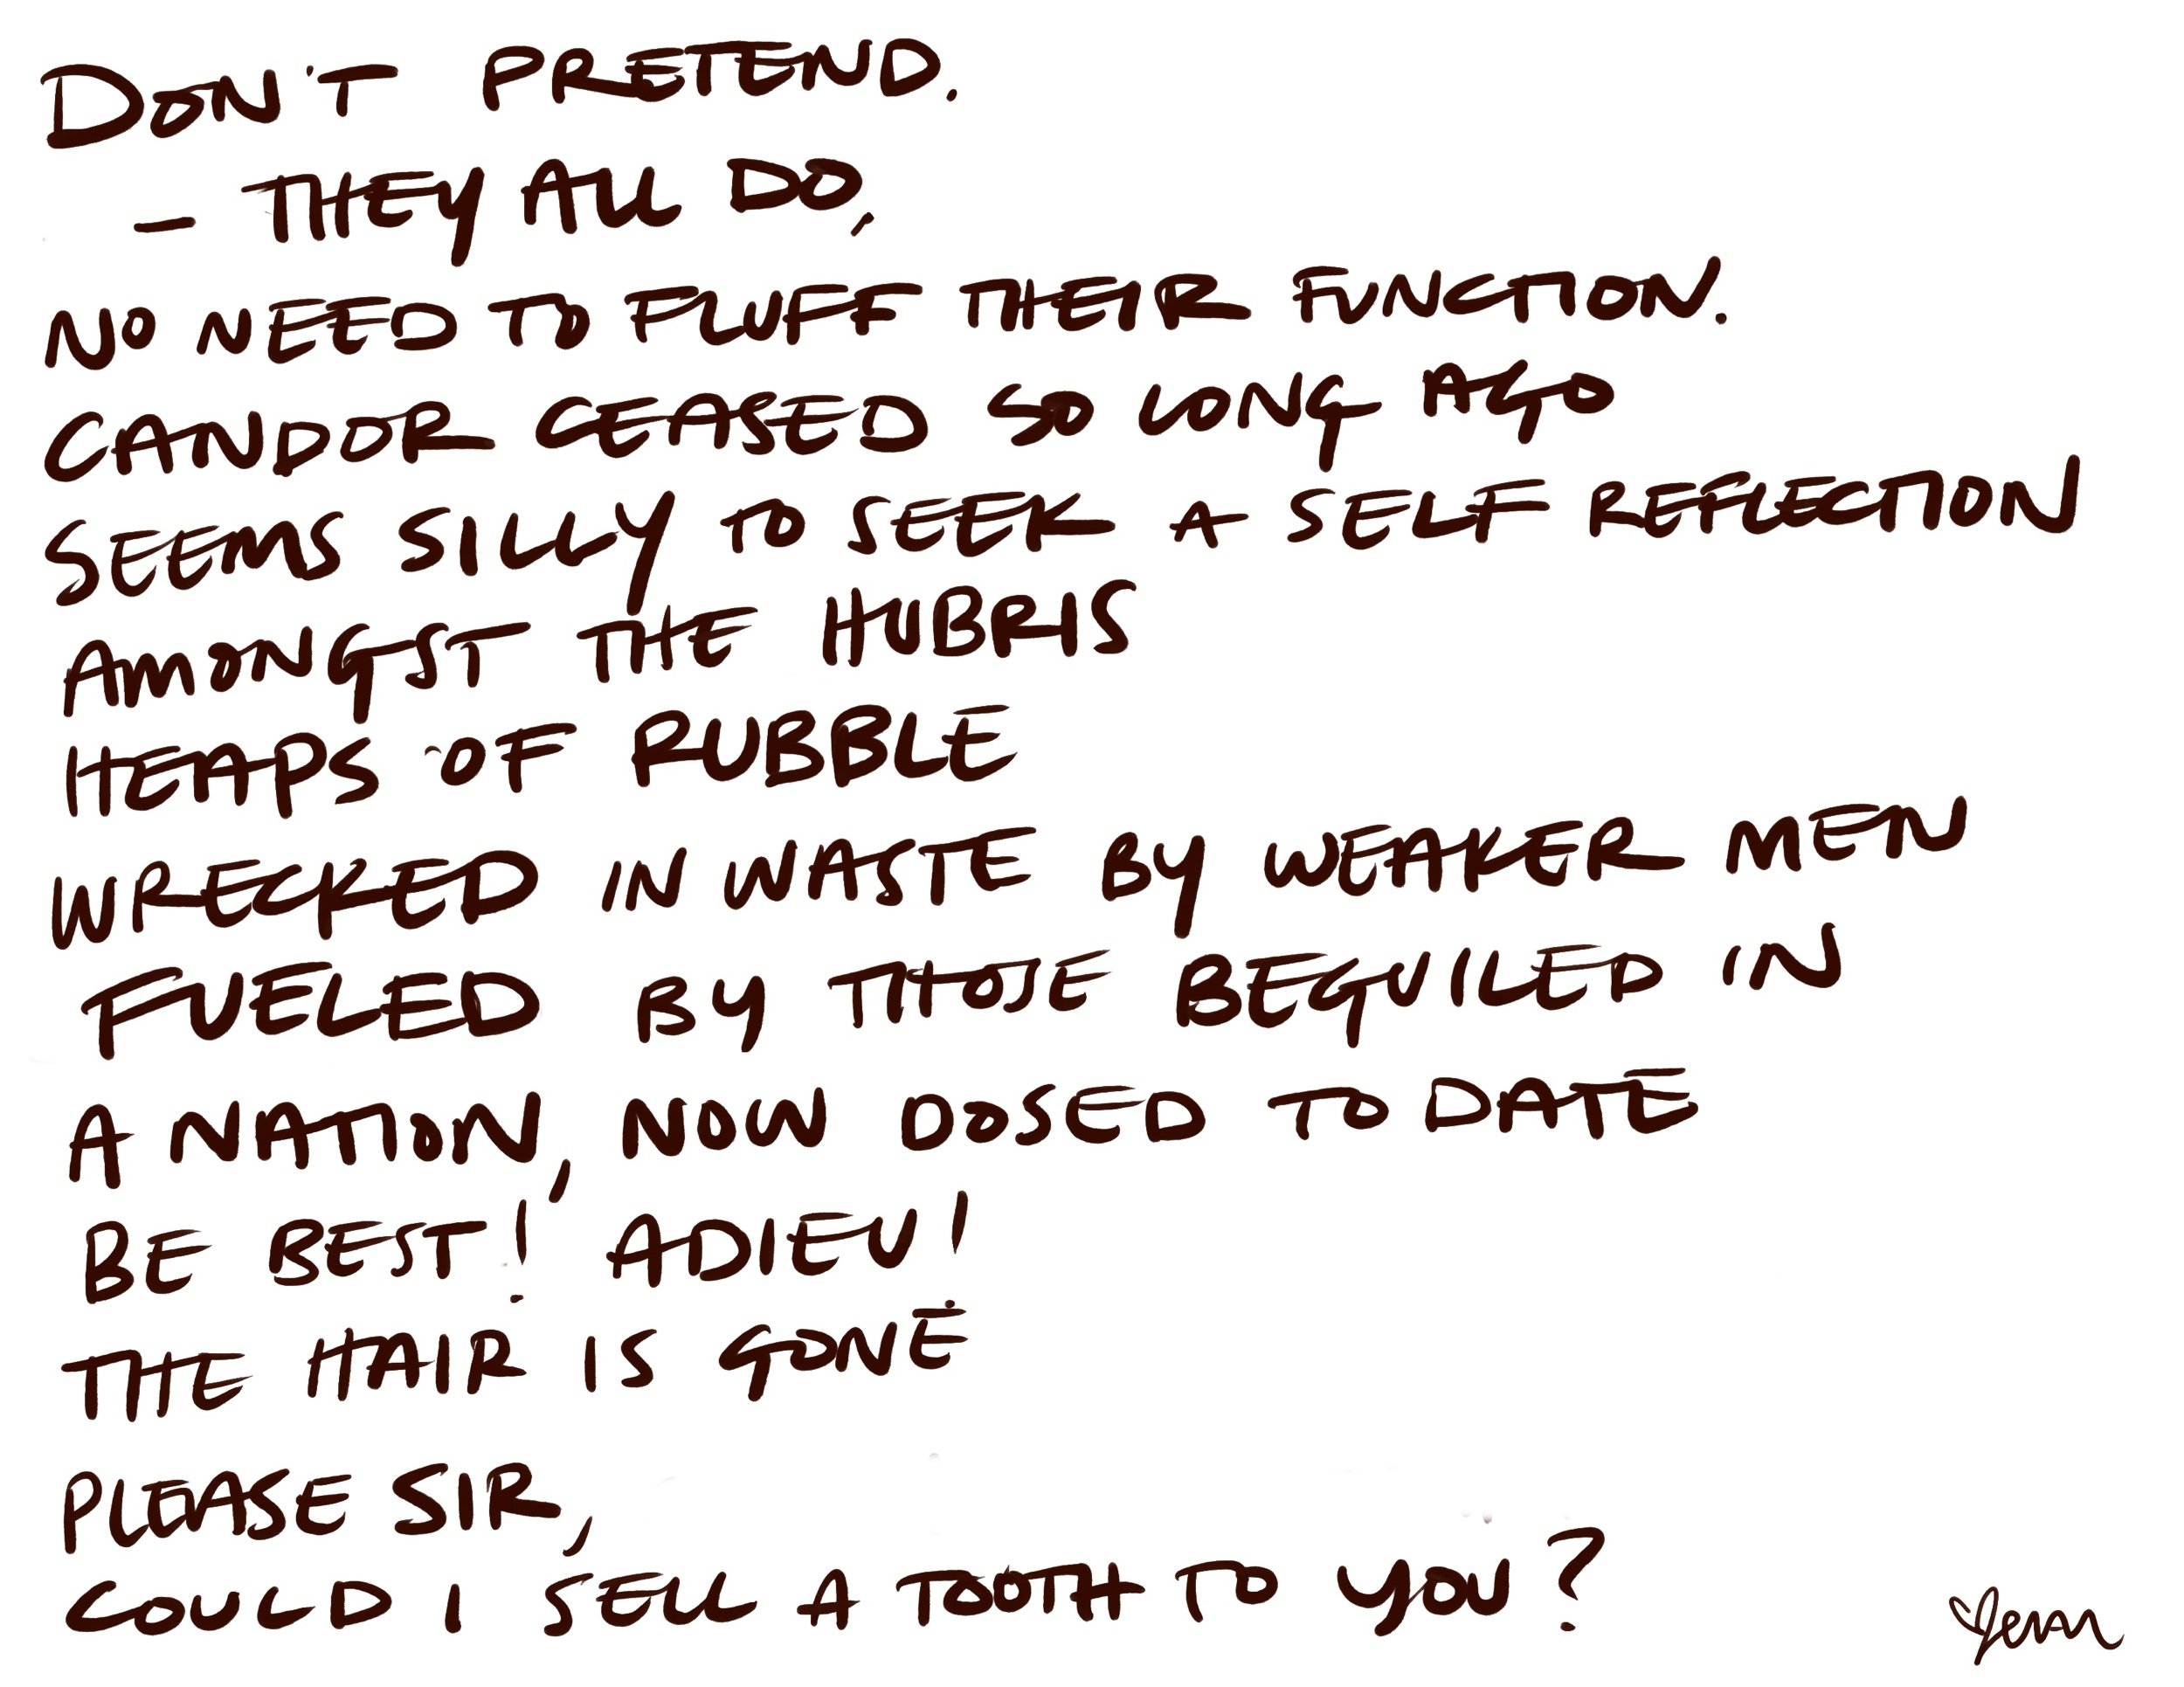 DON'T PRETEND.
- THEY ALL DO,
NO NEED TO FLUFF THEIR FUNCTION.
CANDOR CEASED SO LONG AGO
SEEMS SILLY TO SEEK A SELF REFLECTION
AMONGST THE HUBRIS
HEAPS OF RUBBLE
WRECKED IN WASTE BY WEAKER MEN
FUELED BY THOSE BEGUILED IN
A NATION, NOW DOSED TO DATE
BE BEST! ADIEU!
THE HAIR IS GONE
PLEASE SIR,
COULD I SELL A TOOTH TO YOU?